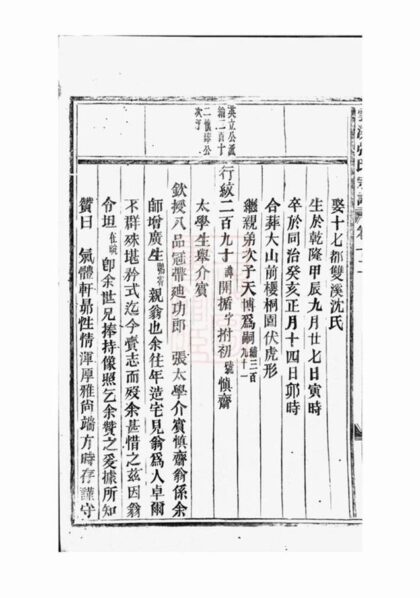 娶十七都雙溪沈氏
生於乾隆甲辰九月廿七日寅時
卒於同治癸亥正月十四日卯時
合葬大山前樓桐園伏虎形
繼親弟次子天博爲嗣總三百九十一
英立公派
總二百十
二慎齋公
次子
行紋二百九十諱開楯字拊初號慎齋
太學生舉介賓
欽授八品冠帶廸功郎 張太學介賓慎齋翁係余
師增廣生鵬霄親翁也余往年造宅見翁爲人卓爾
不群殊堪矜式迄今賫志而歿余甚惜之茲因翁
令坦在畹卽余世兄捧持像照乞余贊之爰據所知
贊曰 氣體軒昻性情渾厚雅尚端方時存謹守